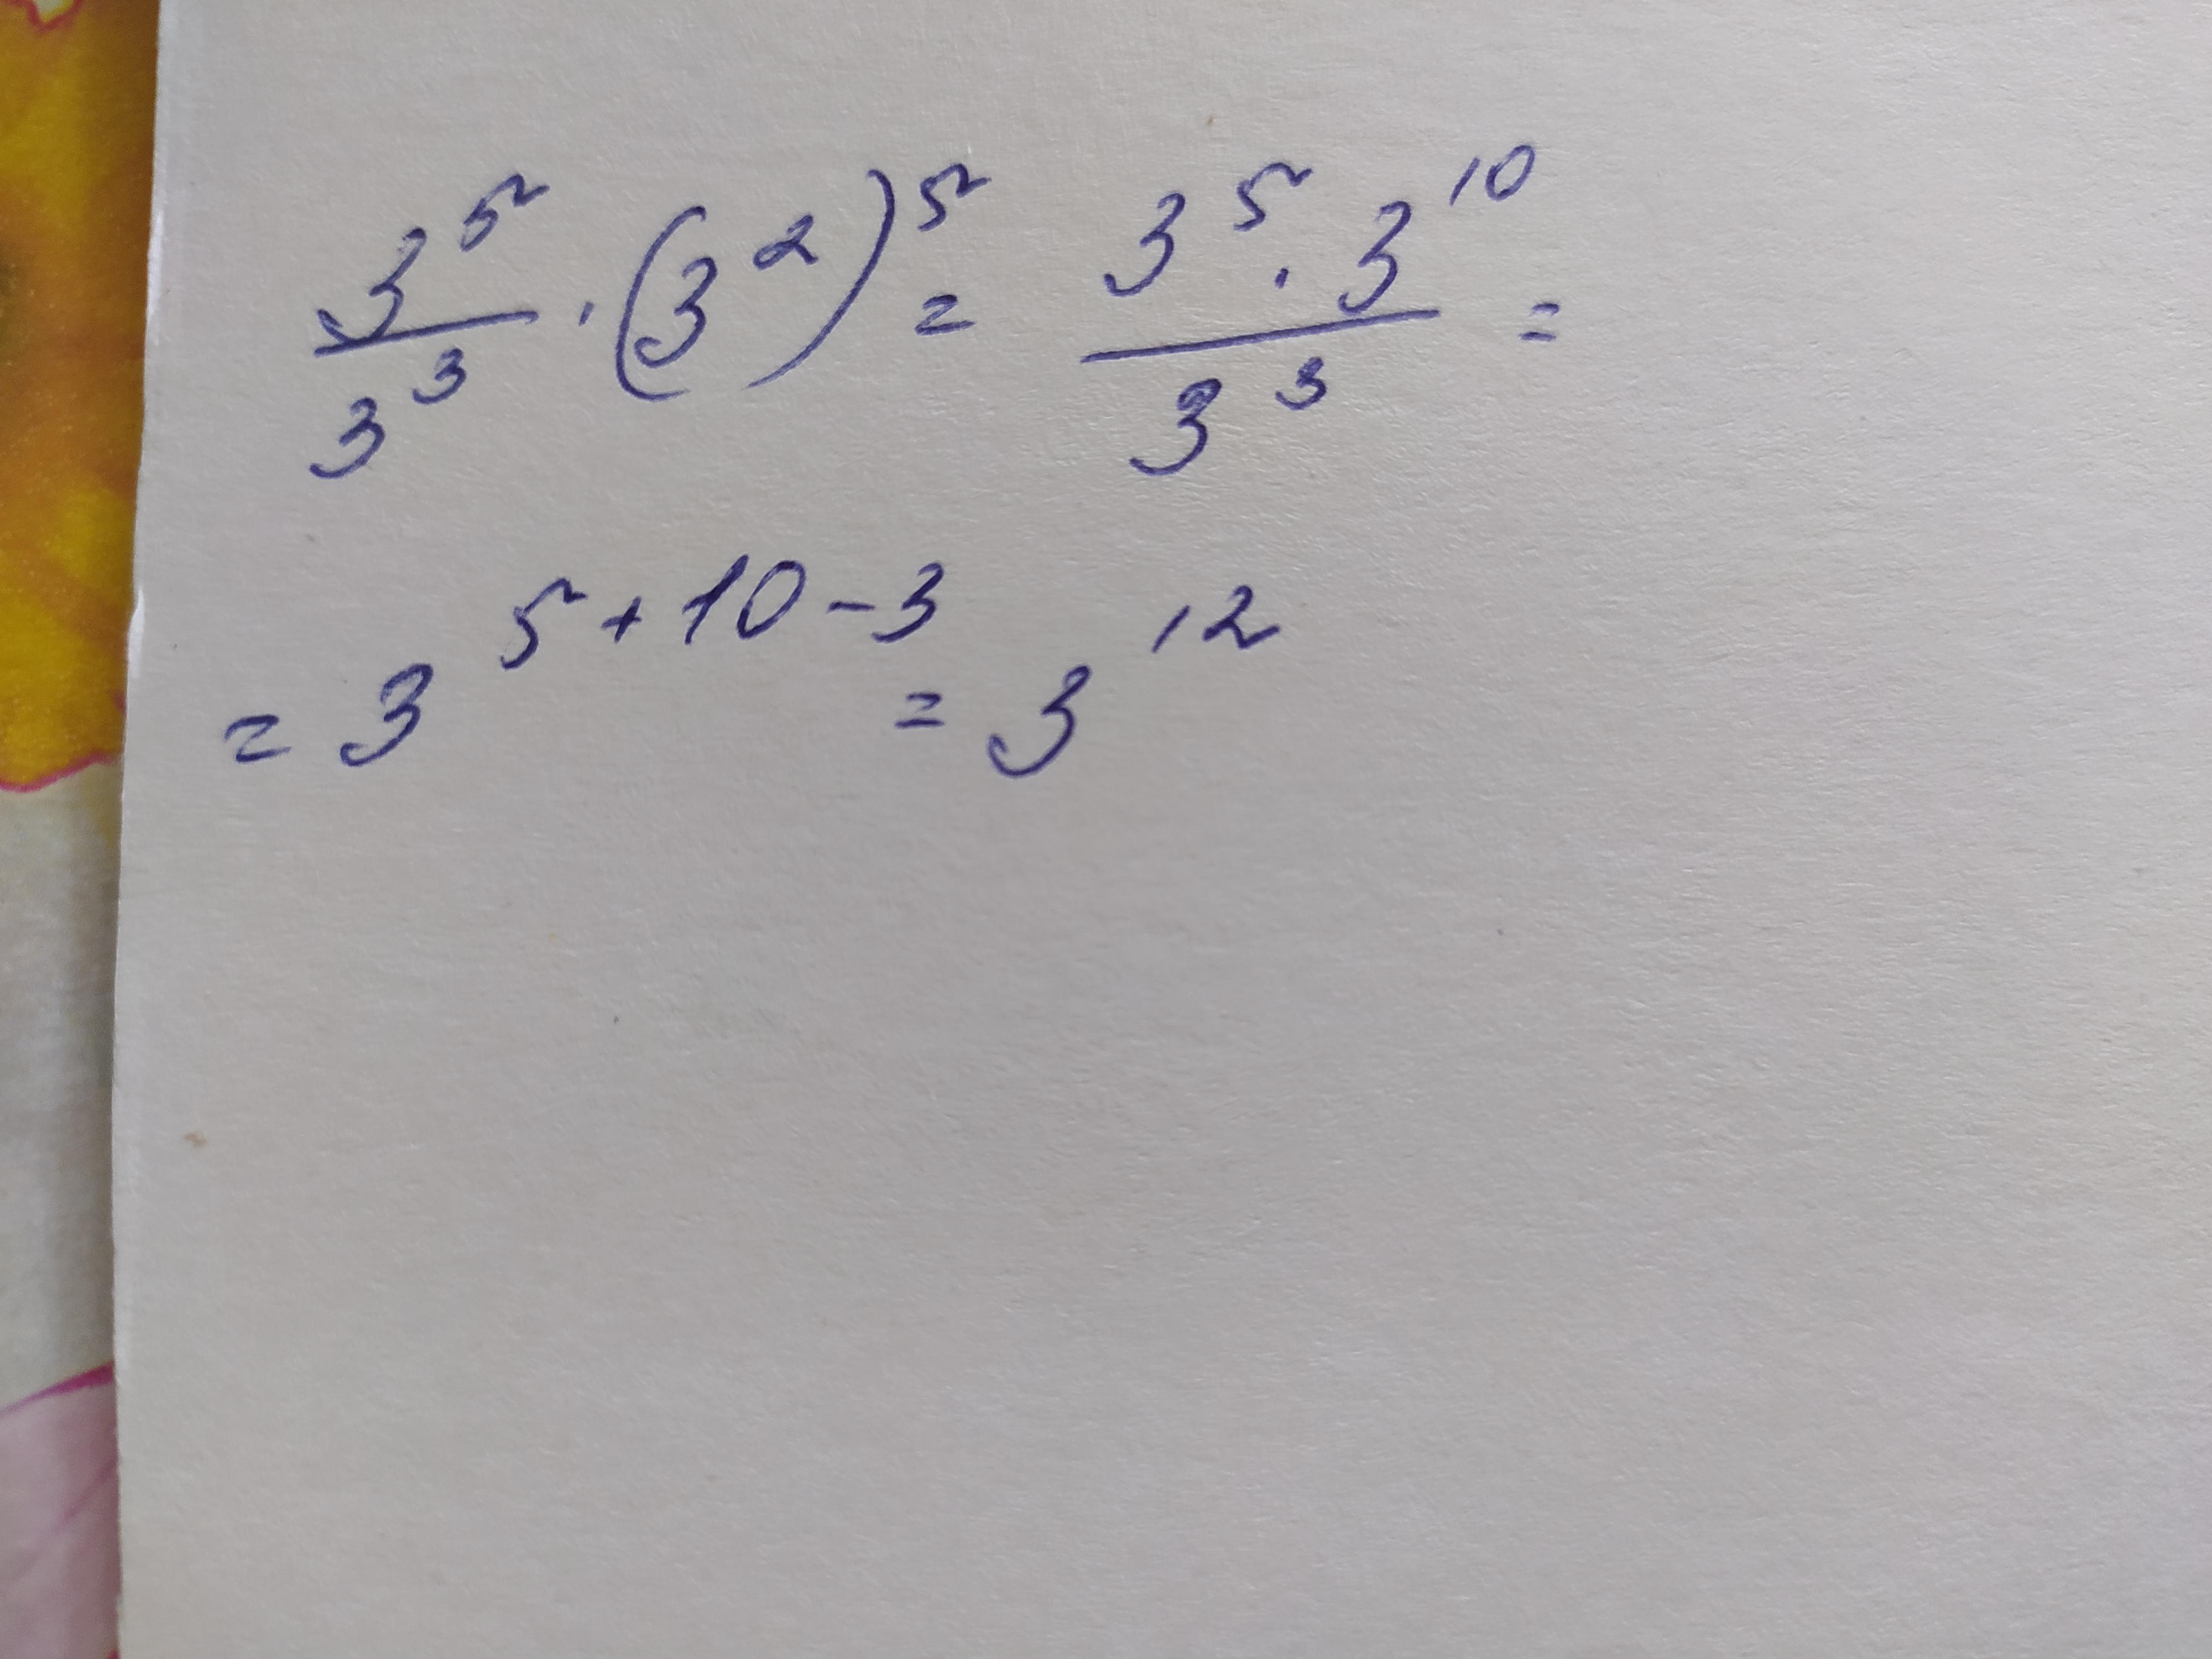 3⁵/3³ · (3²)⁵ = 3⁵ · 3¹⁰/3³ =
= 3⁵⁺¹⁰⁻³ = 3¹²